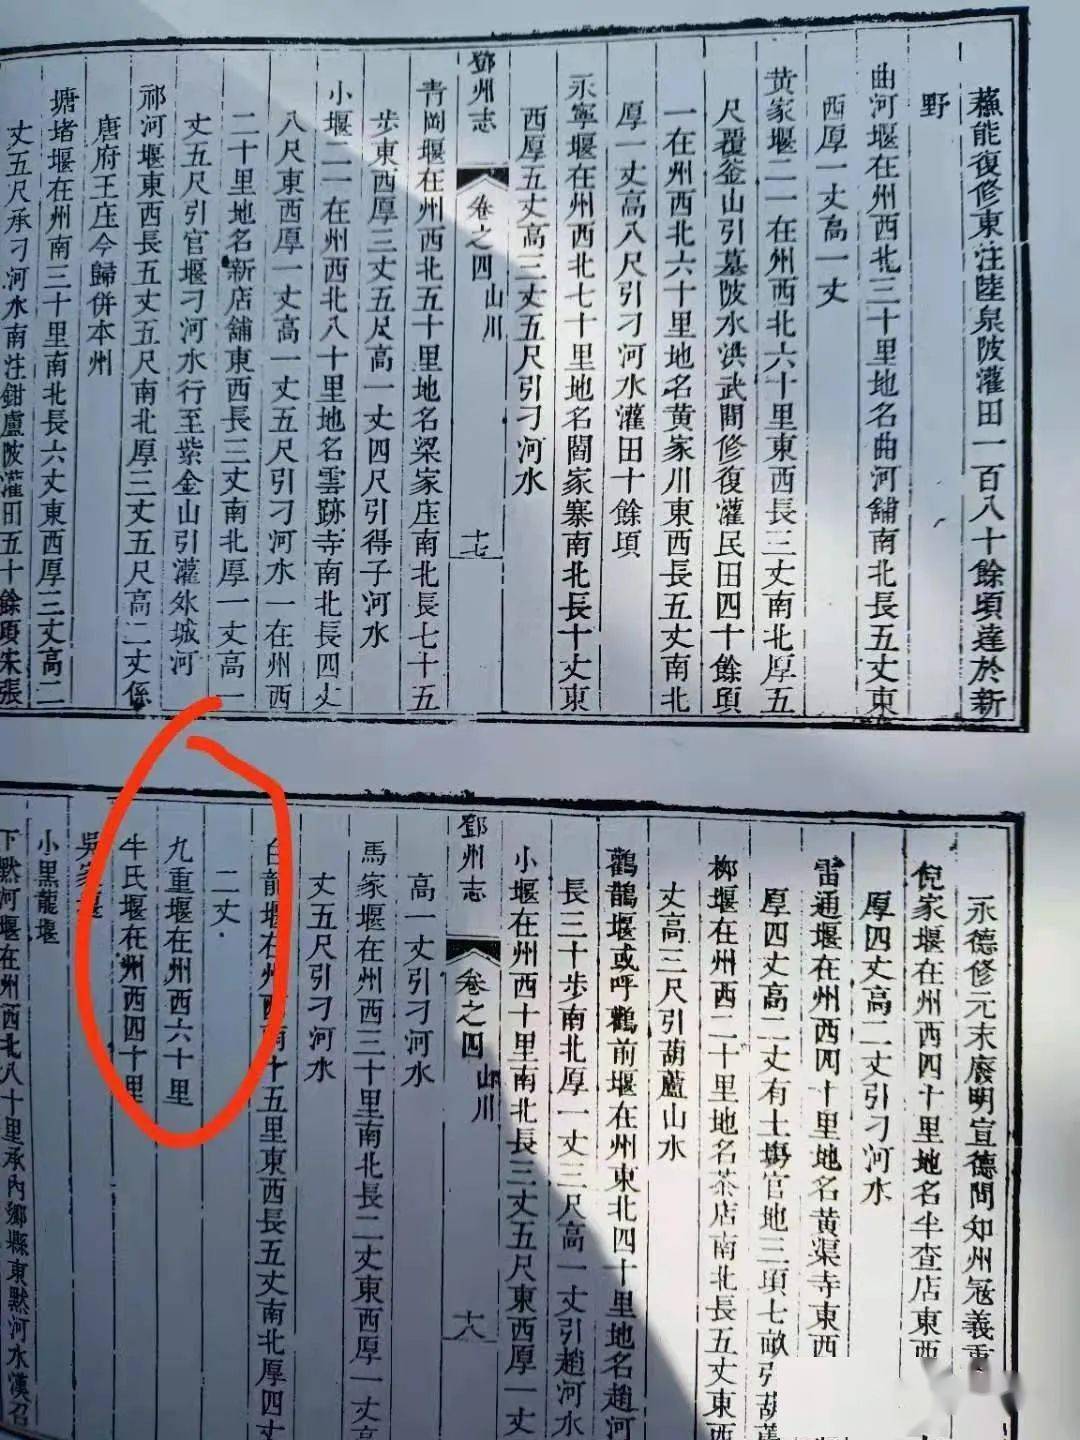 蕪能復修東注陸泉陂灌田一百八十餘頃達於新
野
曲河堰在州西北三十里地名曲河舖南北長五丈東
西厚一丈高一丈
黄家堰二一在州西北六十里東西長三丈南北厚五
尺覆釜山引墓陂水洪武間修復灌民田四十餘頃
一在州西北六十里地名黄家川東西長五丈南北
厚一丈高八尺引刁河水灌田十餘頃
永寧堰在州西北七十里地名閻家寨南北長十丈東
西厚五丈高三丈五尺引刁河水
鄧州志 卷之四 山川 十七
青岡堰在州西北五十里地名梁家庄南北長七十五
步東西厚三丈五尺高一丈四尺引得子河水
小堰二一在州西北八十里地名雲跡寺南北長四丈
八尺東西厚一丈高一丈五尺引刁河水一在州西
二十里地名新店舖東西長三丈南北厚一丈高一
丈五尺引官堰刁河水行至紫金山引灌外城河
祁河堰東西長五丈五尺南北厚三丈五尺高二丈係
唐府王庄今歸併本州
塘堵堰在州南三十里南北長六丈東西厚三丈高二
丈五尺承刁河水南注鉗盧陂灌田五十餘頃宋張
永德修元末廢明宣德間知州寇義重
倪家堰在州西四十里地名半查店東西
厚四丈高二丈引刁河水
雷通堰在州西四十里地名黄渠寺東西
厚四丈高二丈有土塲官地三頃七畝引葫蘆
柳堰在州西二十里地名茶店南北長五丈東西
丈高三尺引葫蘆山水
鸛鵲堰或呼鸛前堰在州東北四十里地名趙河
長三十步南北厚一丈三尺高一丈引趙河水
小堰在州西十里南北長三丈五尺東西厚一丈
鄧州志 卷之四 山川 十八
高一丈引刁河水
馬家堰在州西三十里南北長二丈東西厚一丈高
丈五尺引刁河水
白龍堰在州西南十五里東西長五丈南北厚四丈
二丈
九重堰在州西六十里
牛氏堰在州西四十里
吳家堰
小黒龍堰
下黙河堰在州西北八十里承內鄉縣東黙河水漢召